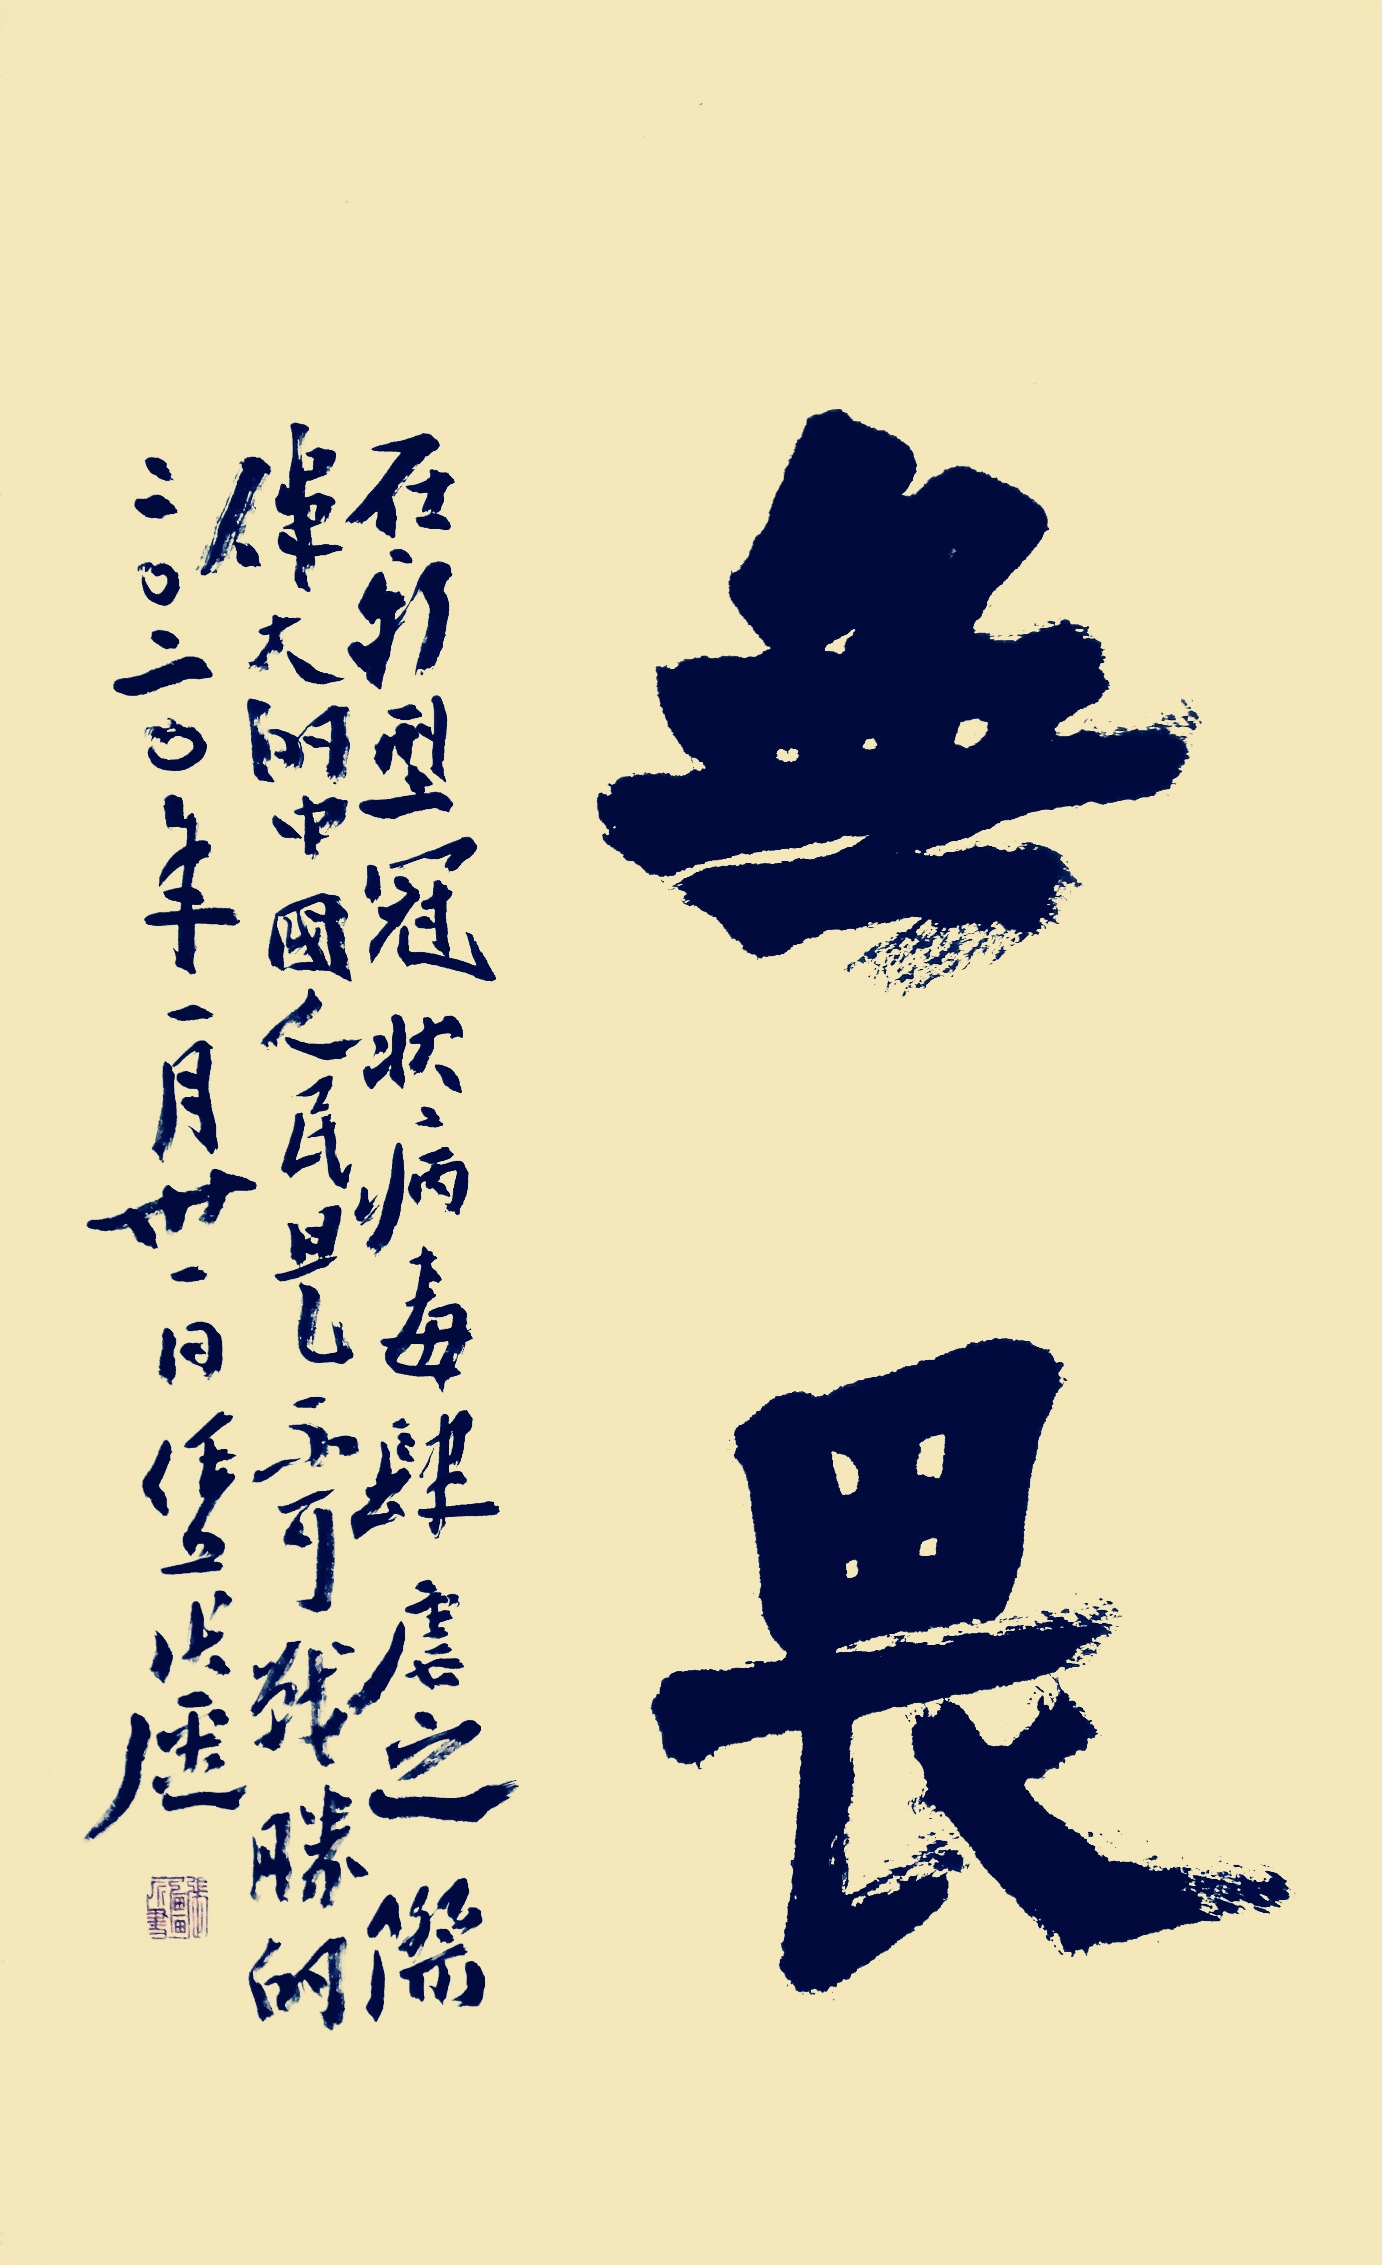 無畏
在新型冠状病毒肆虐之際
偉大的中國人民是不可戰勝的
二〇二〇年一月卅一日